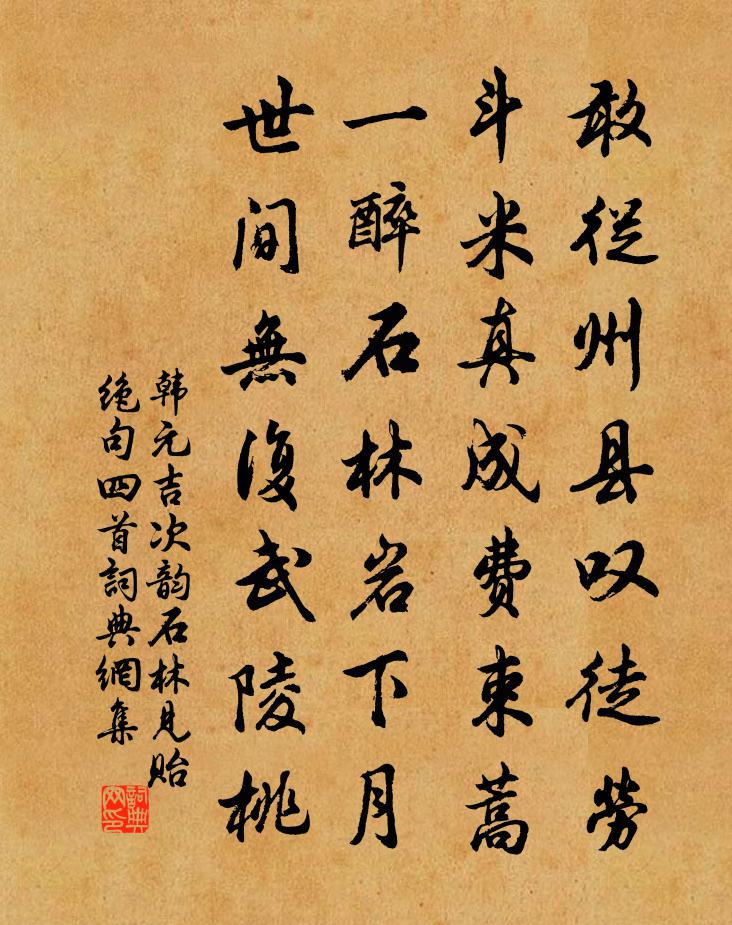 敢從州县叹徒勞
斗米真成費束蒿
一醉石林岩下月
世间無復武陵桃
韩元吉次韵石林見贻
绝句四首詞典網集
詞典网印